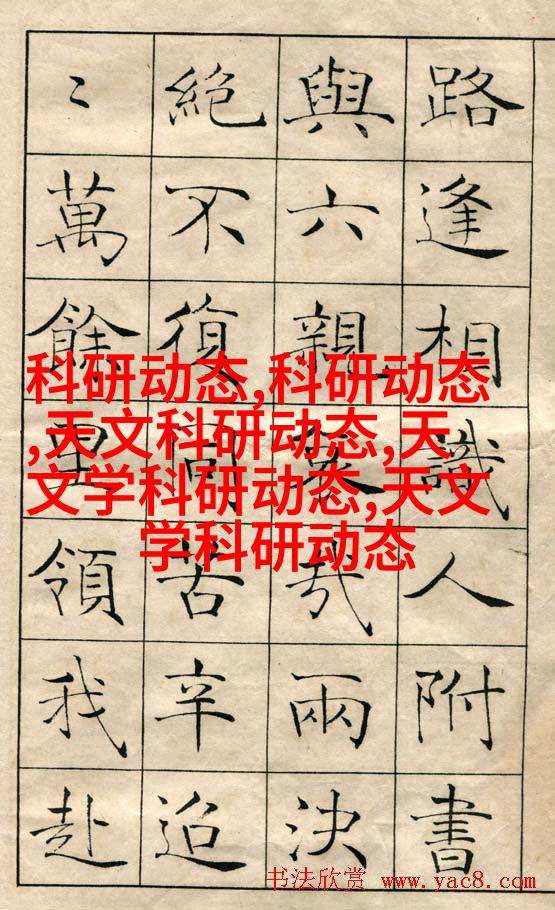 路逢相識人附書
與六親哀哉兩決
絶不復同苦辛迢
〻萬餘里領我赴
科研动态,科研动态
,天文科研动态,天
文学科研动态,天文
学科研动态
书法欣赏 www.yac8.com